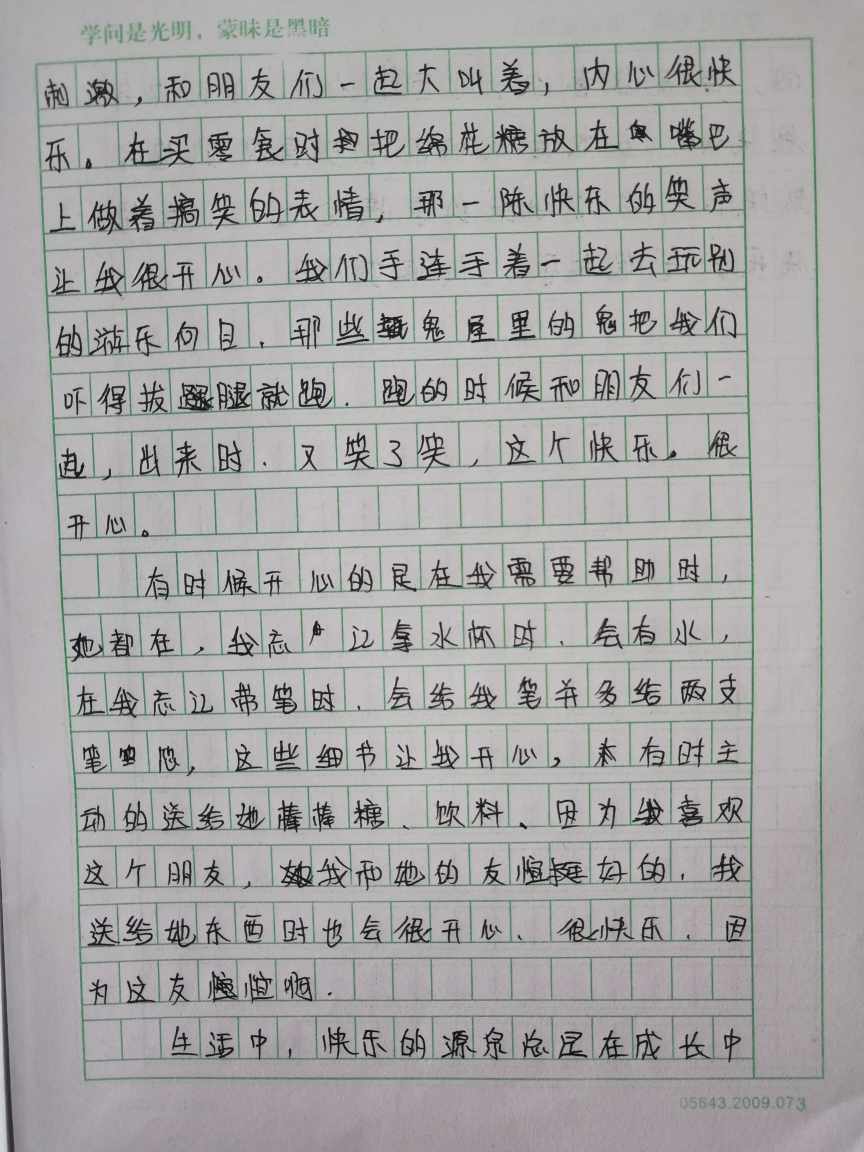 学问是光明，蒙昧是黑暗
刺激，和朋友们一起大叫着，内心很快
乐。在买零食时把绵花糖放在嘴巴
上做着搞笑的表情，那一阵快乐的笑声
让我很开心。我们手连手着一起去玩别
的游乐项目，那些鬼屋里的鬼把我们
吓得拔腿就跑．跑的时候和朋友们一
起，出来时．又笑了笑，这个快乐。很
开心。
有时候开心的是在我需要帮助时，
她都在，我忘记拿水杯时．会有水，
在我忘记带笔时．会给我笔并多给两支
笔，这些细节让我开心，有时主
动的送给她棒棒糖、饮料、因为我喜欢
这个朋友，我和她的友谊挺好的．我
送给她东西时也会很开心、很快乐．因
为这友谊啊．
生活中，快乐的源泉总是在成长中
05643.2009.073